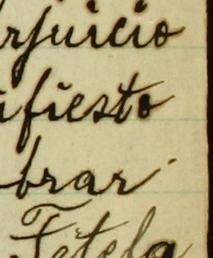 rjuicio
ifiesto
brar
Tetela